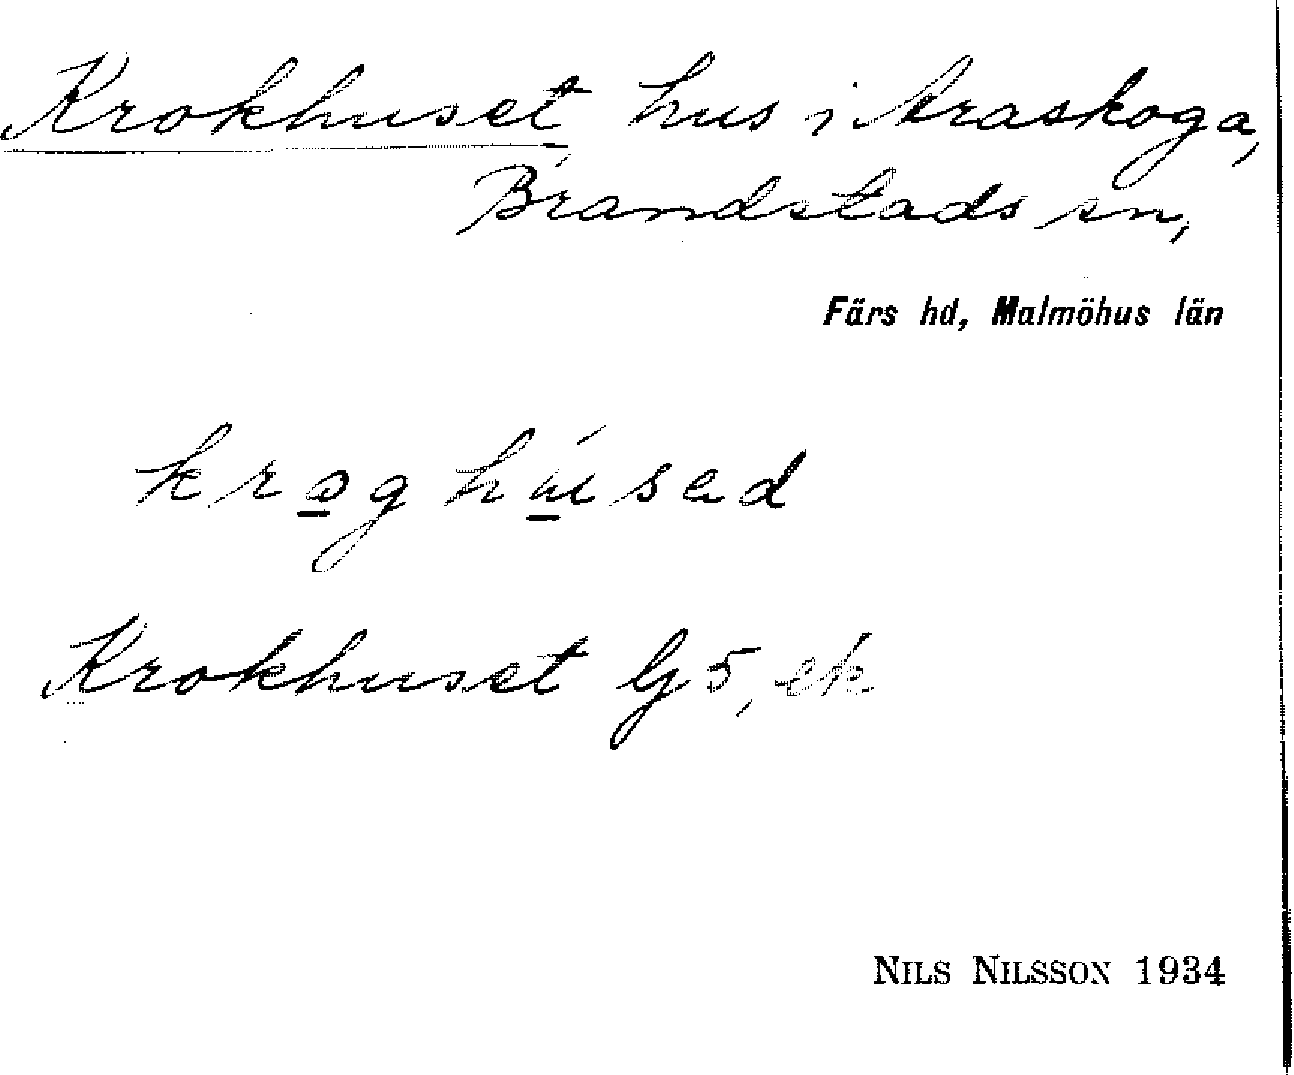 Krokhuset hus i Araskoga,
Brandstads sn,
Färs hd, Malmöhus län
krog húsad
Krokhuset G5, ek
NILS NILSSON 1934